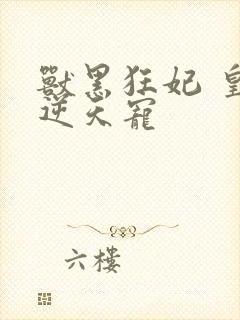 獸黑狂妃 皇
逆天寵
六樓